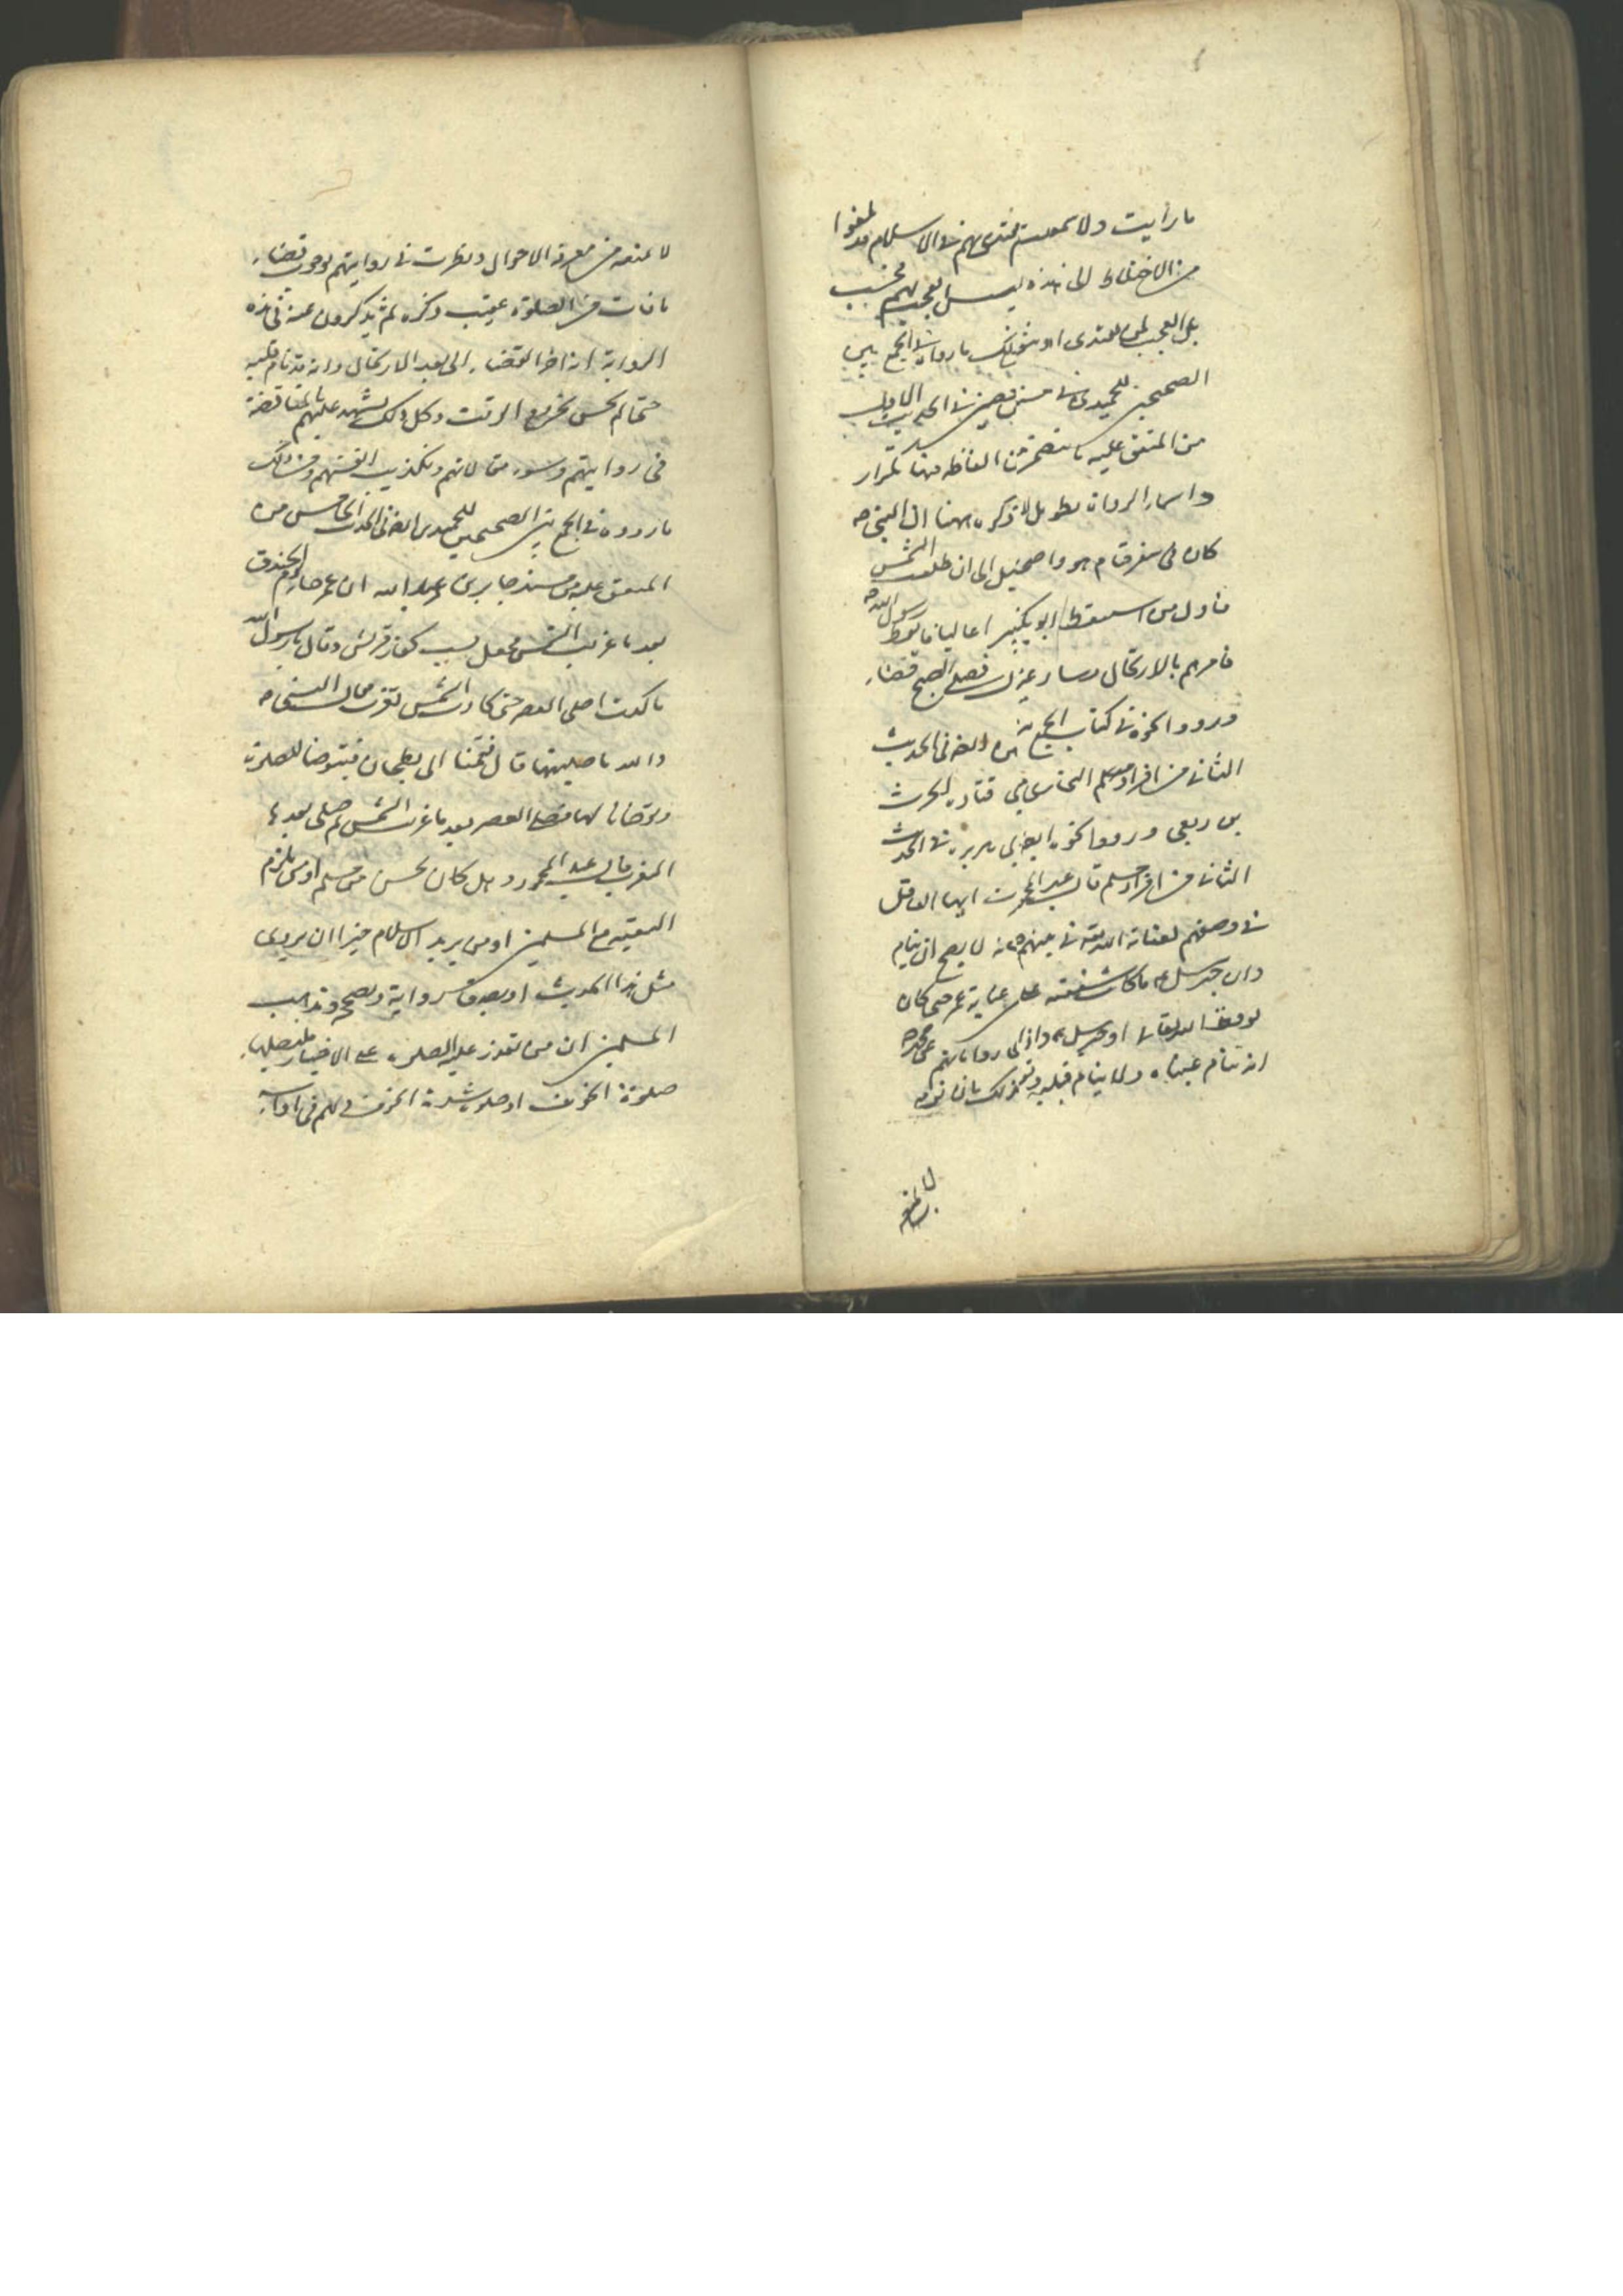 ما رأيت ولا سمعت بمقتدى بهم في الاسلام قد بلغوا
من الاختلاط الى هذه ليس العجب منهم فحسب
بل العجب لمن يقتدى او يثق بذلك ما رواه في الجمع بين
الصحيحين للحميدى في مسند حصين في الحديث الاول
من المتفق عليه ما تتضمن الفاظه تكرار
واسماء الرواة تطويل لا نذكره ههنا ان النبى ص
كان فى سفر فنام هو واصحابه الى ان طلعت الشمس
فاول من استيقظ ابو بكر رسول الله ص
فامرهم بالارتحال وسار غير بعيد فصلى الصبح قضاء
ورووا نحوه فى كتاب الجمع بين ايضا فى الحديث
الثانى من افراد مسلم البخارى ابى قتادة الحرث
بن ربعى ورووا نحوه ايضا عن ابى هريرة فى الحديث
الثانى من افراد مسلم قال عبد المحمود ايها العاقل
فى وصفهم لعناية الله تعالى بنبيهم وانه لا يصح ان ينام
وان جبرئيل ما كانت شفقته على عناية عمر حتى كان
يوقظه الله تعالى او جبرئيل واذا رواياتهم عن محمد ص
انه تنام عيناه ولا ينام قلبه وتفسير ذلك بان نومه
لا يمنعه
لا يمنعه من معرفة الاحوال ونظرت فى رواياتهم بوجوب قضاء
ما فات من الصلوة عقيب ذكره ثم يذكرون عنه فى هذه
الرواية انه اخر القضاء الى بعد الارتحال وانه قد نام قلبه
حتى لم يحس بخروج الوقت وكل ذلك يشهد عليهم بالمناقضة
فى رواياتهم وسوء مقالاتهم وتكذيب انفسهم ومن ذلك
ما رووه فى الجمع بين الصحيحين للحميدى ايضا فى الحديث الخامس من
المتفق عليه من مسند جابر بن عبد الله ان عمر جاء يوم الخندق
بعد ما غربت الشمس فجعل يسب كفار قريش وقال يا رسول الله
ما كدت اصلى العصر حتى كادت الشمس تغرب فقال النبى ص
والله ما صليتها قال فقمنا الى بطحان فتوضا للصلوة
وتوضانا لها فصلى العصر بعد ما غربت الشمس ثم صلى بعدها
المغرب قال عبد المحمود وهل كان يحسن من مسلم او من يلزم
البقية مع المسلمين او من يريد الاسلام خيرا ان يروى
مثل هذا الحديث او يصدق رواية ويصححه ومذهب
المسلمين ان من تعذر عليه الصلوة على الاختيار فليصلها
صلوة الخوف او صلوة شدة الخوف فلم فى ادآء